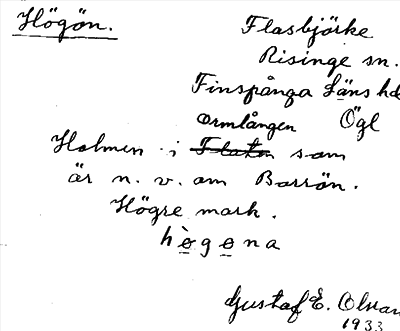 Högön.
Flasbjörke
Risinge sn.
Finspånga Läns hd
Ormlången Ögl
Holmen i som
är n. v. om Barrön.
Högre mark.
hø̀gøna
Gustaf E. Olsson
1933